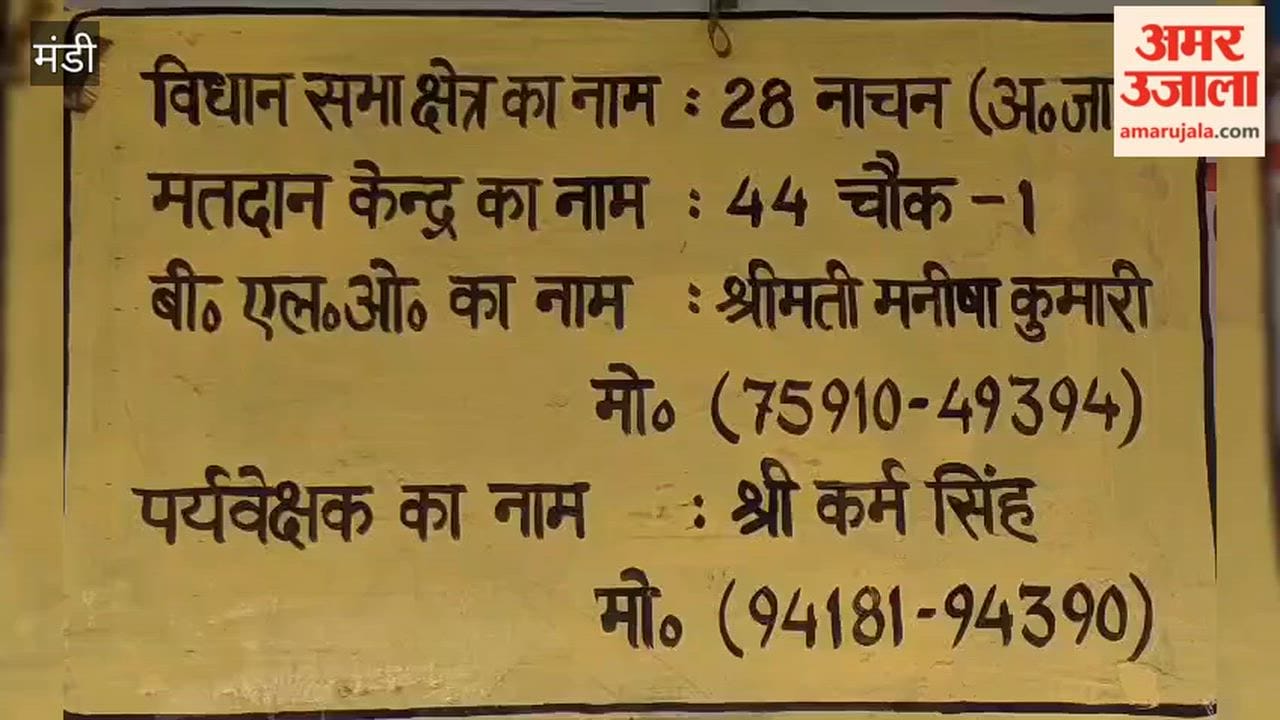 मंडी
अमर
उजाला
amarujala.com
विधान सभा क्षेत्र का नाम : 28 नाचन (अ॰जा
मतदान केन्द्र का नाम : 44 चौक -1
बी॰ एल॰ओ॰ का नाम : श्रीमती मनीषा कुमारी
मो॰ (75910-49394)
पर्यवेक्षक का नाम : श्री कर्म सिंह
मो॰ (94181-94390)